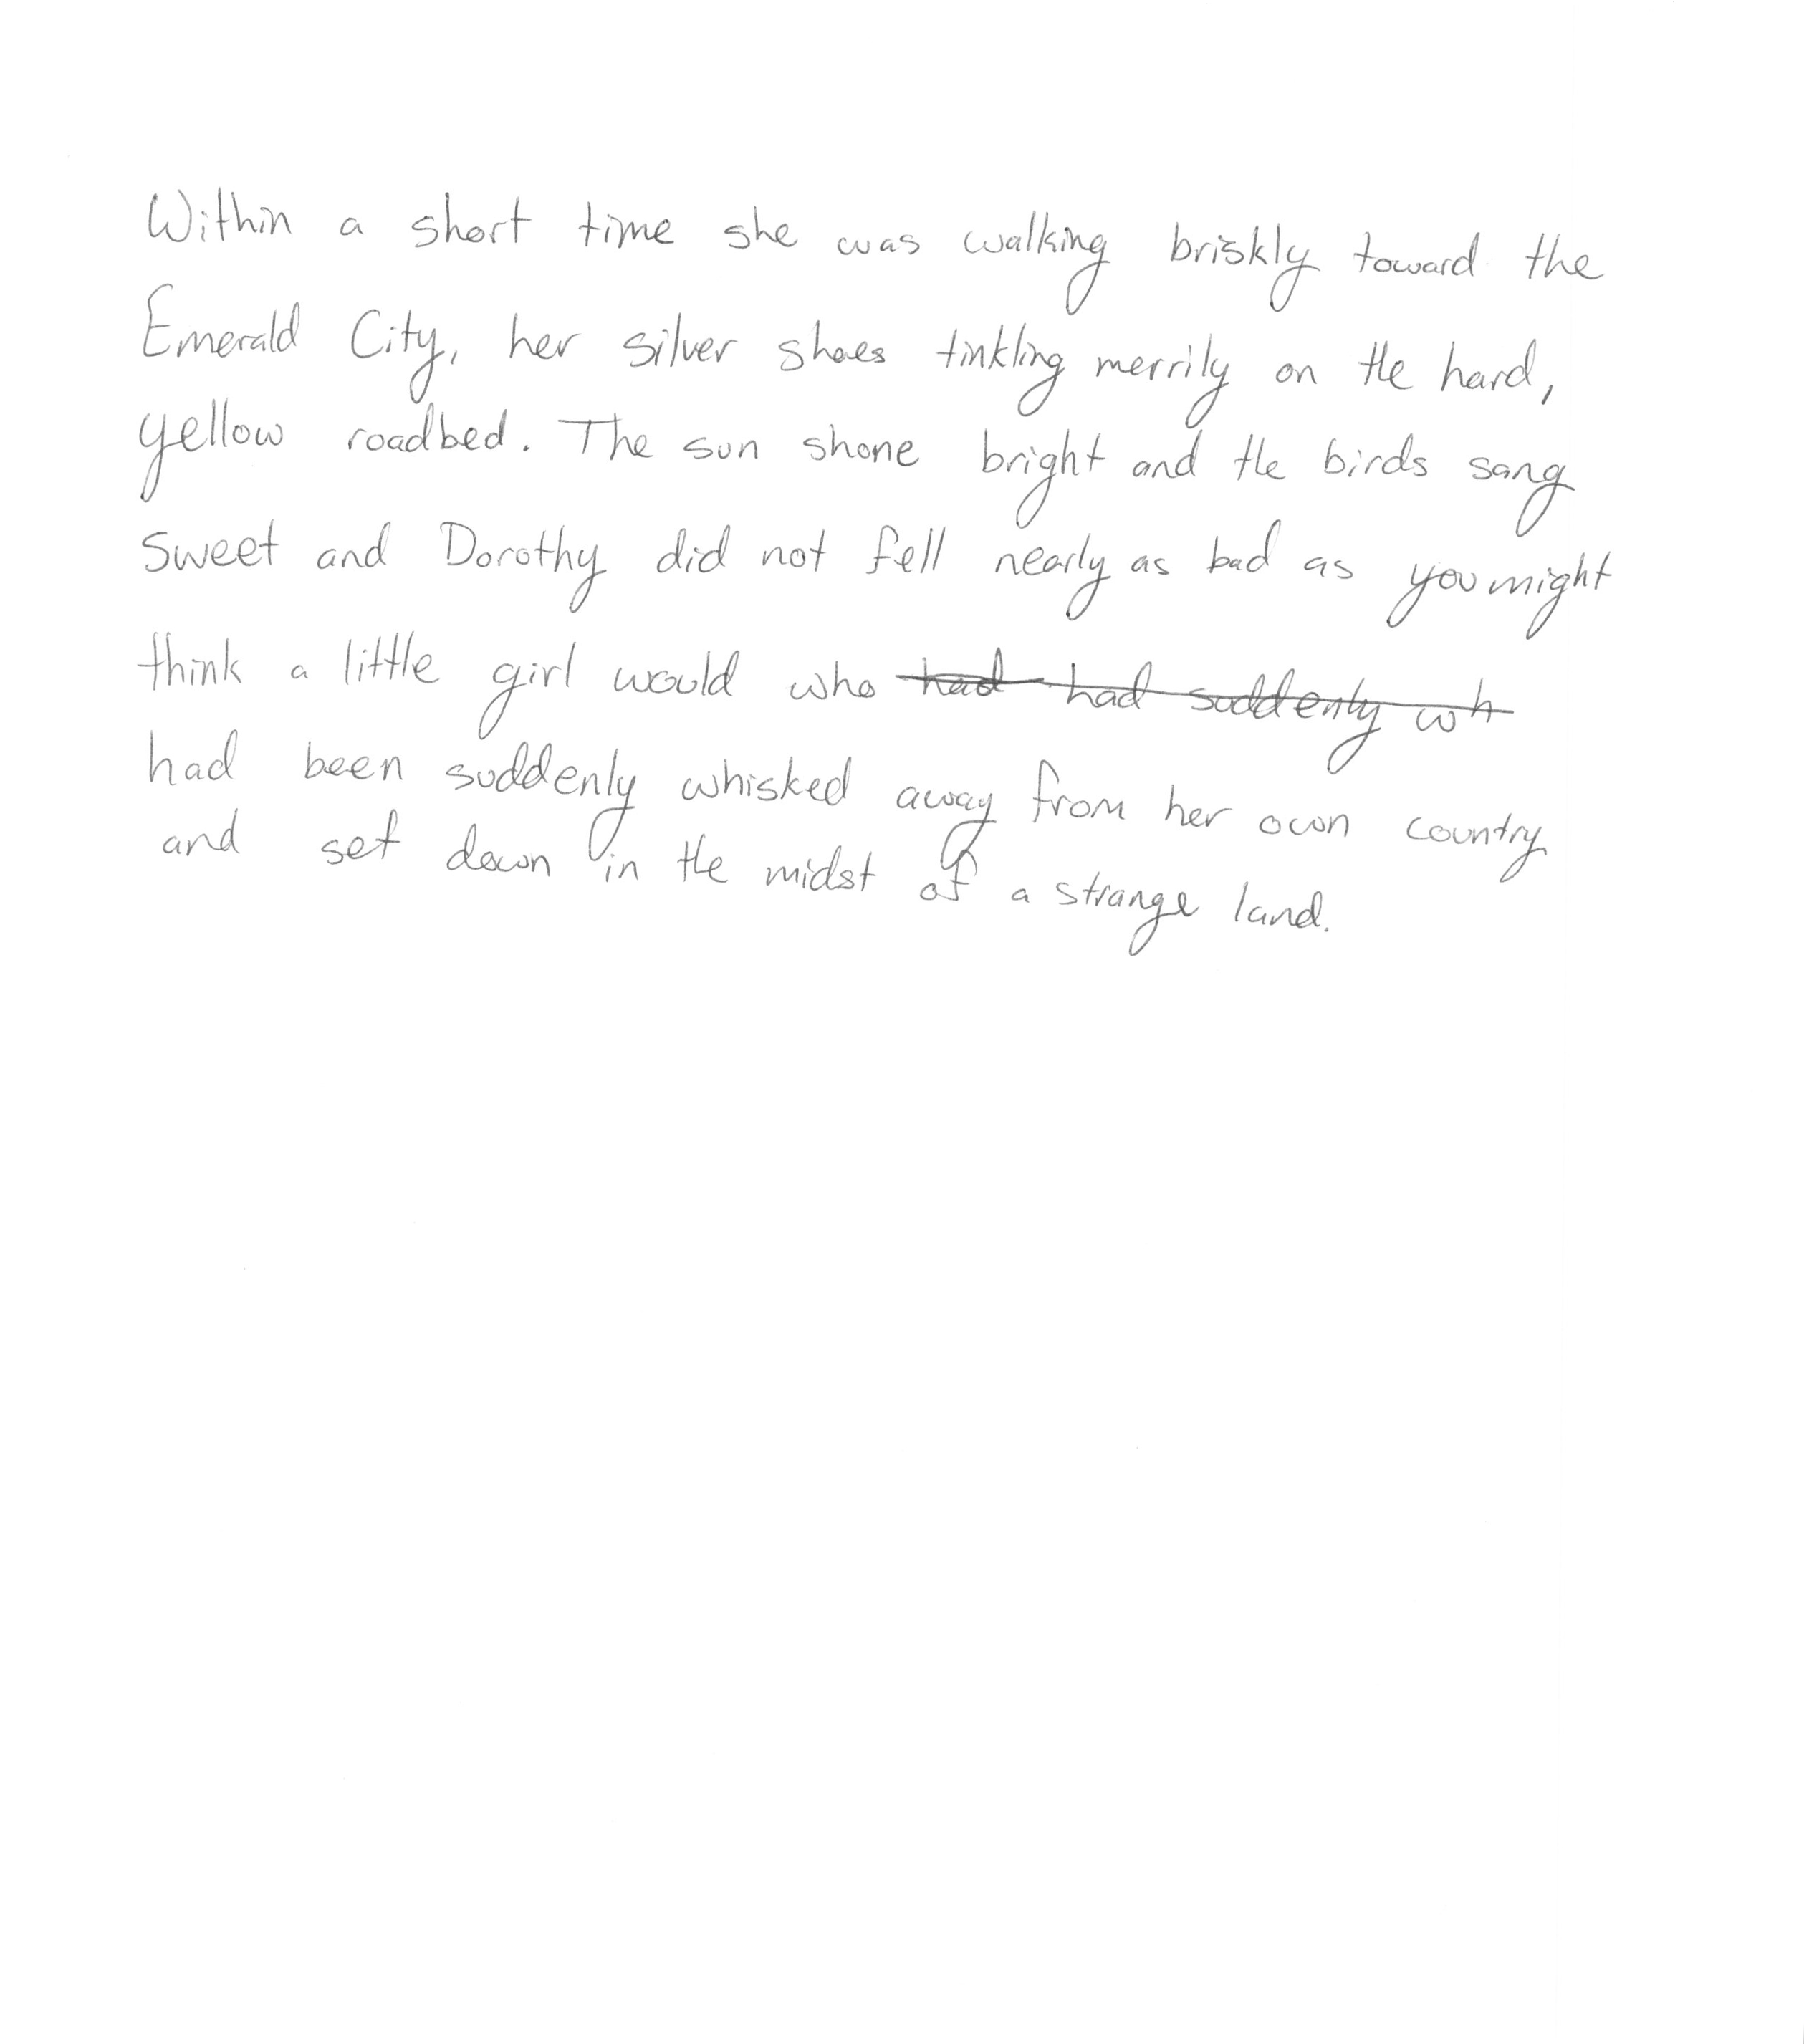 Within a short time she was walking briskly toward the
Emerald City, her silver shoes tinkling merrily on the hard,
yellow roadbed. The sun shone bright and the birds sang
sweet and Dorothy did not fell nearly as bad as you might
think a little girl would who ~~had had suddenly wh~~
had been suddenly whisked away from her own country
and set down in the midst of a strange land.